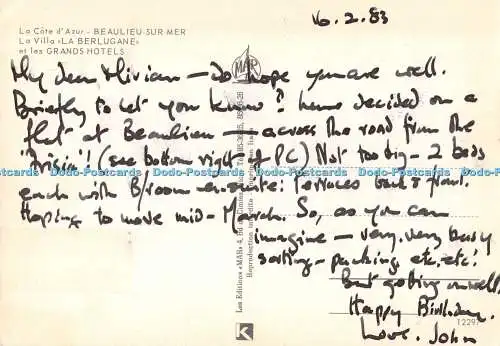 16.2.83
La Côte d'Azur - BEAULIEU-SUR-MER
La Villa «LA BERLUGANE»
et les GRANDS HOTELS
MAR
My dear Vivian - do hope you are well.
Briefly to let you know I have decided on a
flat at Beaulieu - across the road from the
(see bottom right of PC) Not too big - 2 beds
each with B/room en-suite! Terraces back & front.
Hoping to move mid-March. So, as you can
imagine - very, very busy
sorting - packing etc. etc!
But getting on well.
Happy Birthday.
Love. John
Les Editions «MAR»
Reproduction interdite
K
1229
Postcards Dodo-Postcards Dodo-Postcards Dodo-Postcards Dodo-Postcards